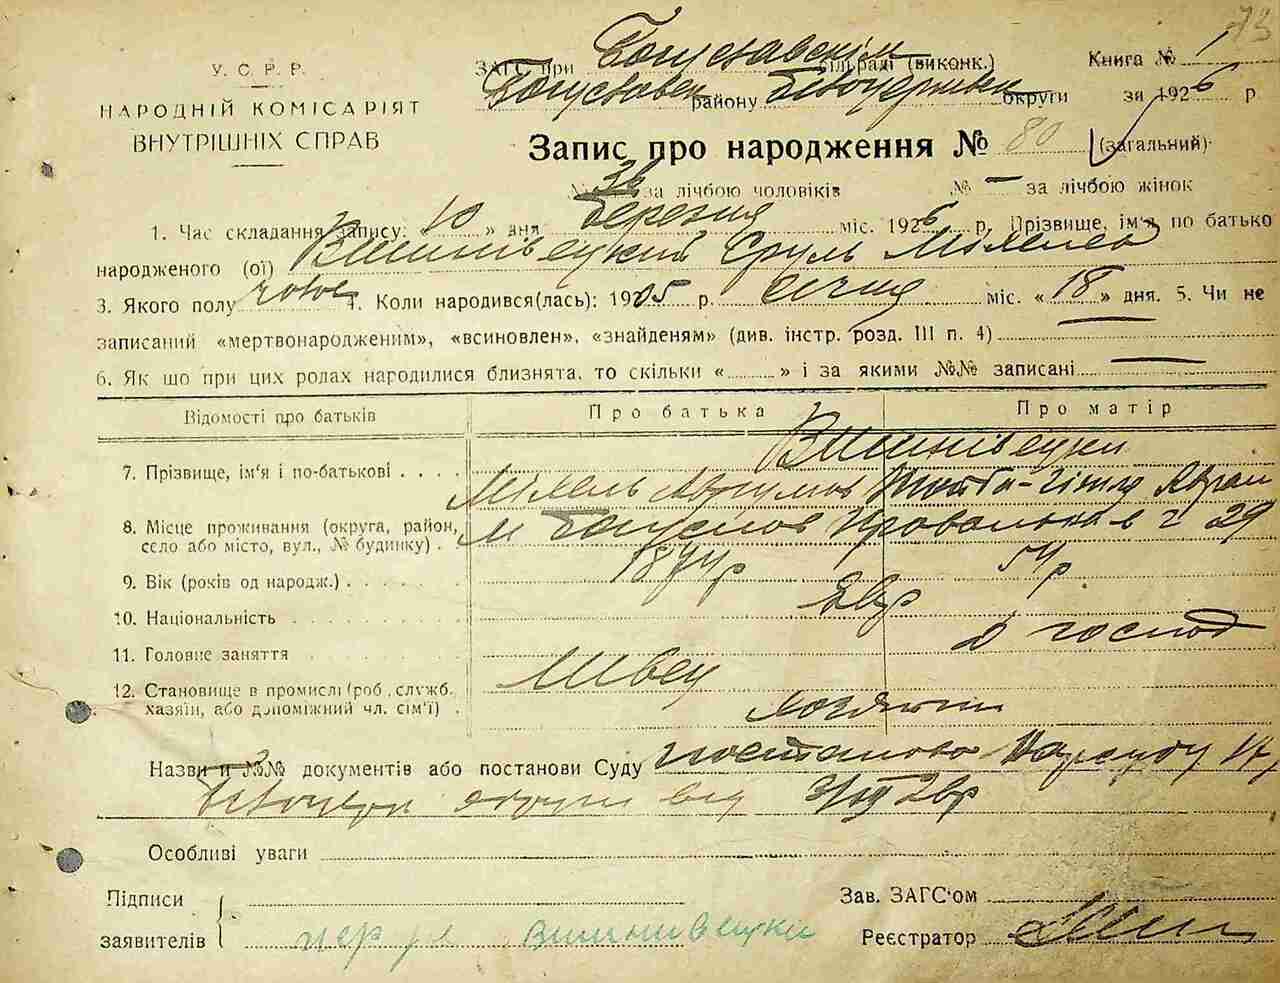 73
У. С. Р. Р.
НАРОДНІЙ КОМІСАРІЯТ
ВНУТРІШНІХ СПРАВ
ЗАГС при Богуславськім сільраді (виконк.) Книга № 1
Богуславськ району Білоцерківськ округи за 1926 р
Запис про народження № 80 (загальний)
№ 36 за лічбою чоловіків № — за лічбою жінок
1. Час складання запису: «10» дня Березня міс. 1926 р. Прізвище, ім'я, по батько
народженого (ої) Вишнівецкий Сруль Міхелев
3. Якого полу чолов 4. Коли народився(лась): 1905 р. січня міс. «18» дня. 5. Чи не
записаний «мертвонародженим», «всиновлен», «знайденям» (див. інстр. розд. III п. 4) —
6. Як що при цих родах народилися близнята, то скільки «........» і за якими №№ записані —
Відомості про батьків Про батька Про матір
Вишнівецки
7. Прізвище, ім'я і по-батькові . . . . Міхель
8. Місце проживання (округа, район, село або місто, вул., № будинку) . м Богуслав 29
9. Вік (років од народж.) . . . . . . . 1874р 51р
10. Національність . . . . . . . . . . Євр
11. Головне заняття . . . . . . . . . Швец д господ
12. Становище в промислі (роб., служб. хазяїн, або допоміжний чл. сім'ї) .
Назви й №№ документів або постанови Суду постанова Нарсуду
Білоцерк округи від
Особливі уваги
Підписи
заявителів Вишнивецки
Зав. ЗАГС'ом
Реєстратор